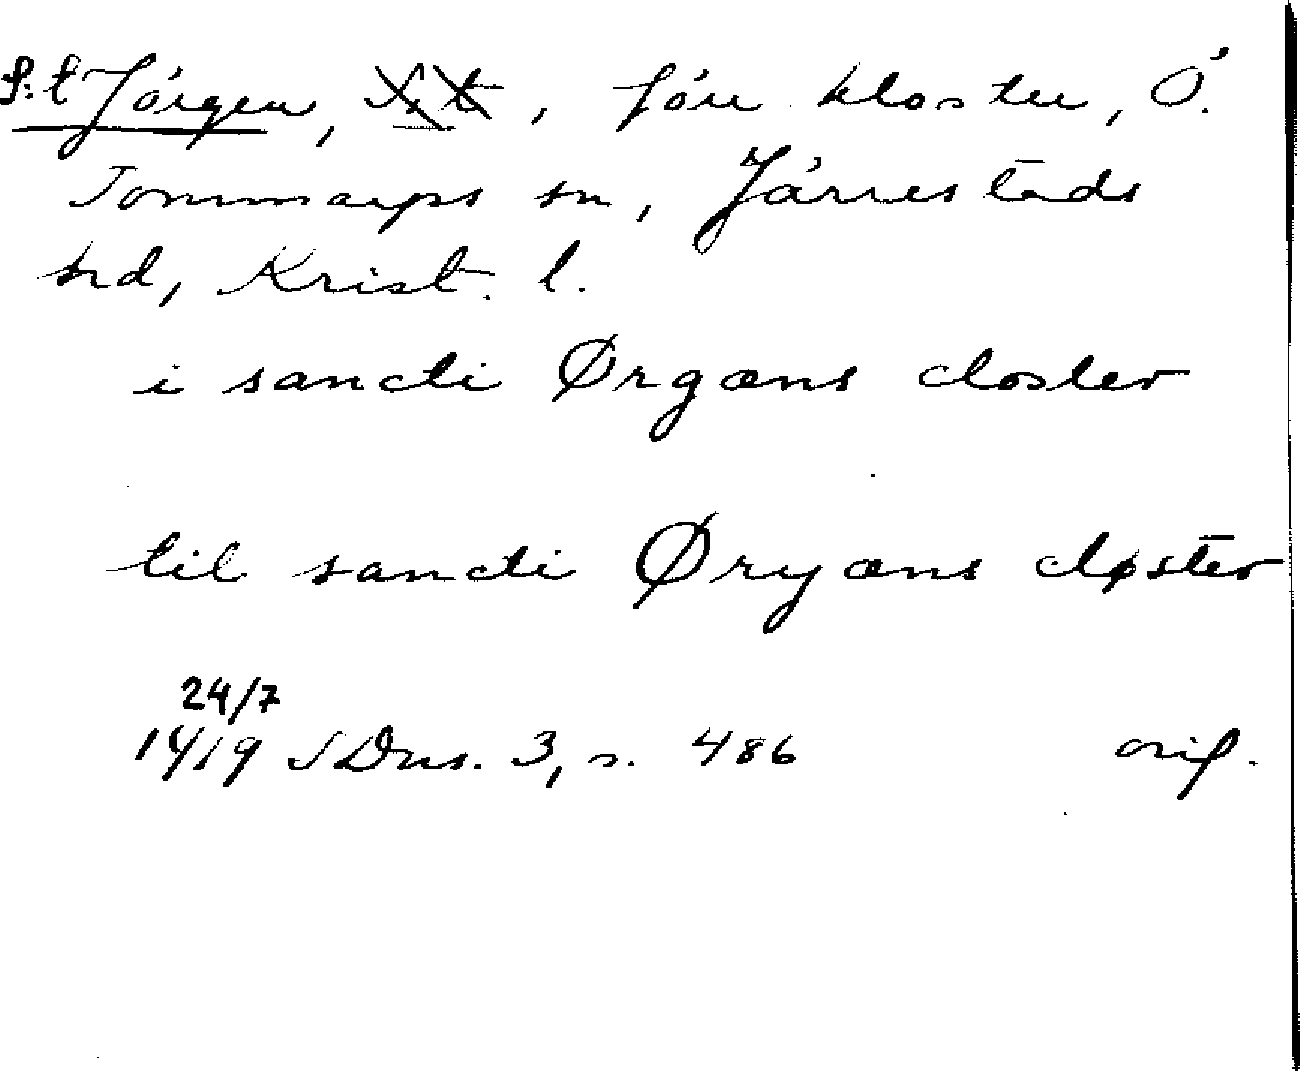 S:t Jörgen, S:t, förr kloster, Ö.
Tommarps sn, Järrestads
hd, Krist. l.
i sancti Ørgæns closter
til sancti Øryæns closter
24/7
1419 SDns. 3, s. 486 orig.